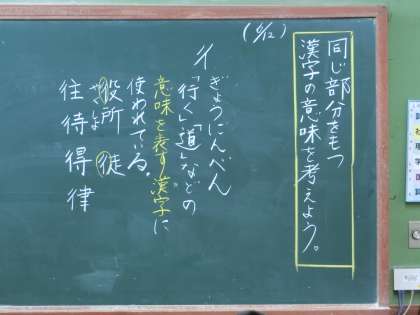 (6/12)
同じ部分をもつ
漢字の意味を考えよう。
彳 ぎょうにんべん
「行く」「道」などの
意味を表す漢字に
使われている。
役所 徒
やくしょ
往待得律